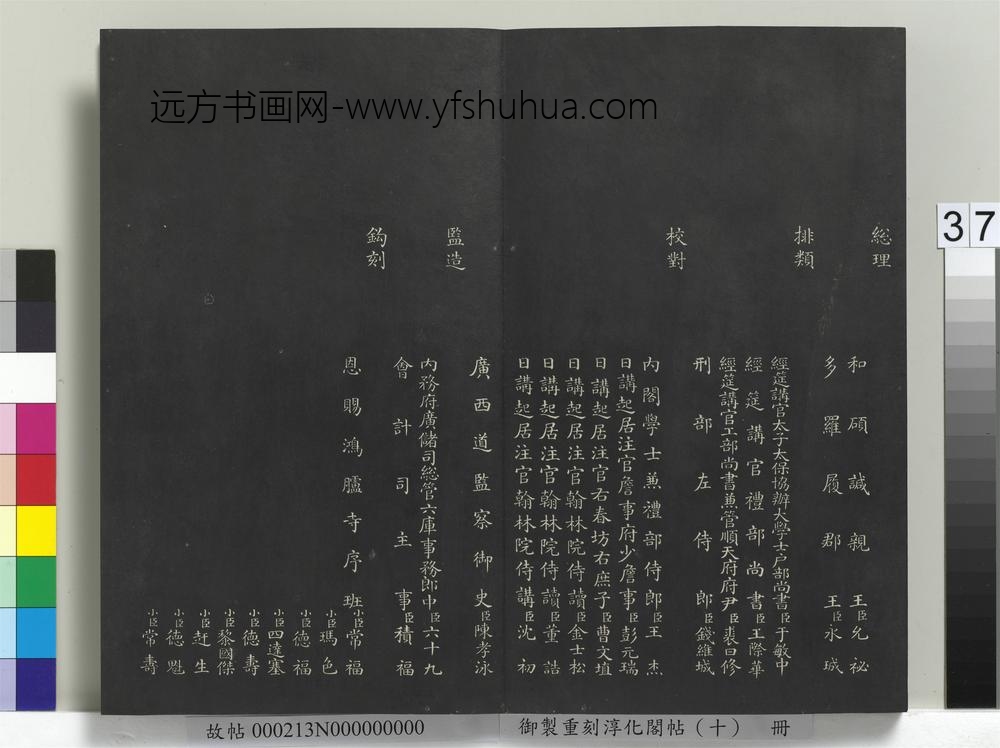 远方书画网-www.yfshuhua.com
37
総理
和碩諴親王臣允祕
多羅履郡王臣永珹
排類
經筵講官太子太保協辦大學士戶部尚書臣于敏中
經筵講官禮部尚書臣王際華
經筵講官工部尚書兼管順天府府尹臣裘曰修
刑部左侍郎臣錢維城
校對
內閣學士兼禮部侍郎臣王杰
日講起居注官詹事府少詹事臣彭元瑞
日講起居注官右春坊右庶子臣曹文埴
日講起居注官翰林院侍讀臣金士松
日講起居注官翰林院侍讀臣董誥
日講起居注官翰林院侍講臣沈初
廣西道監察御史臣陳孝泳
監造
內務府廣儲司総管六庫事務郎中臣六十九
會計司主事臣積福
鈎刻
恩賜鴻臚寺序班小臣常福
小臣瑪色
小臣德福
小臣四達塞
小臣德壽
小臣黎國傑
小臣赶生
小臣德魁
小臣常壽
故帖 000213N000000000
御製重刻淳化閣帖（十） 冊